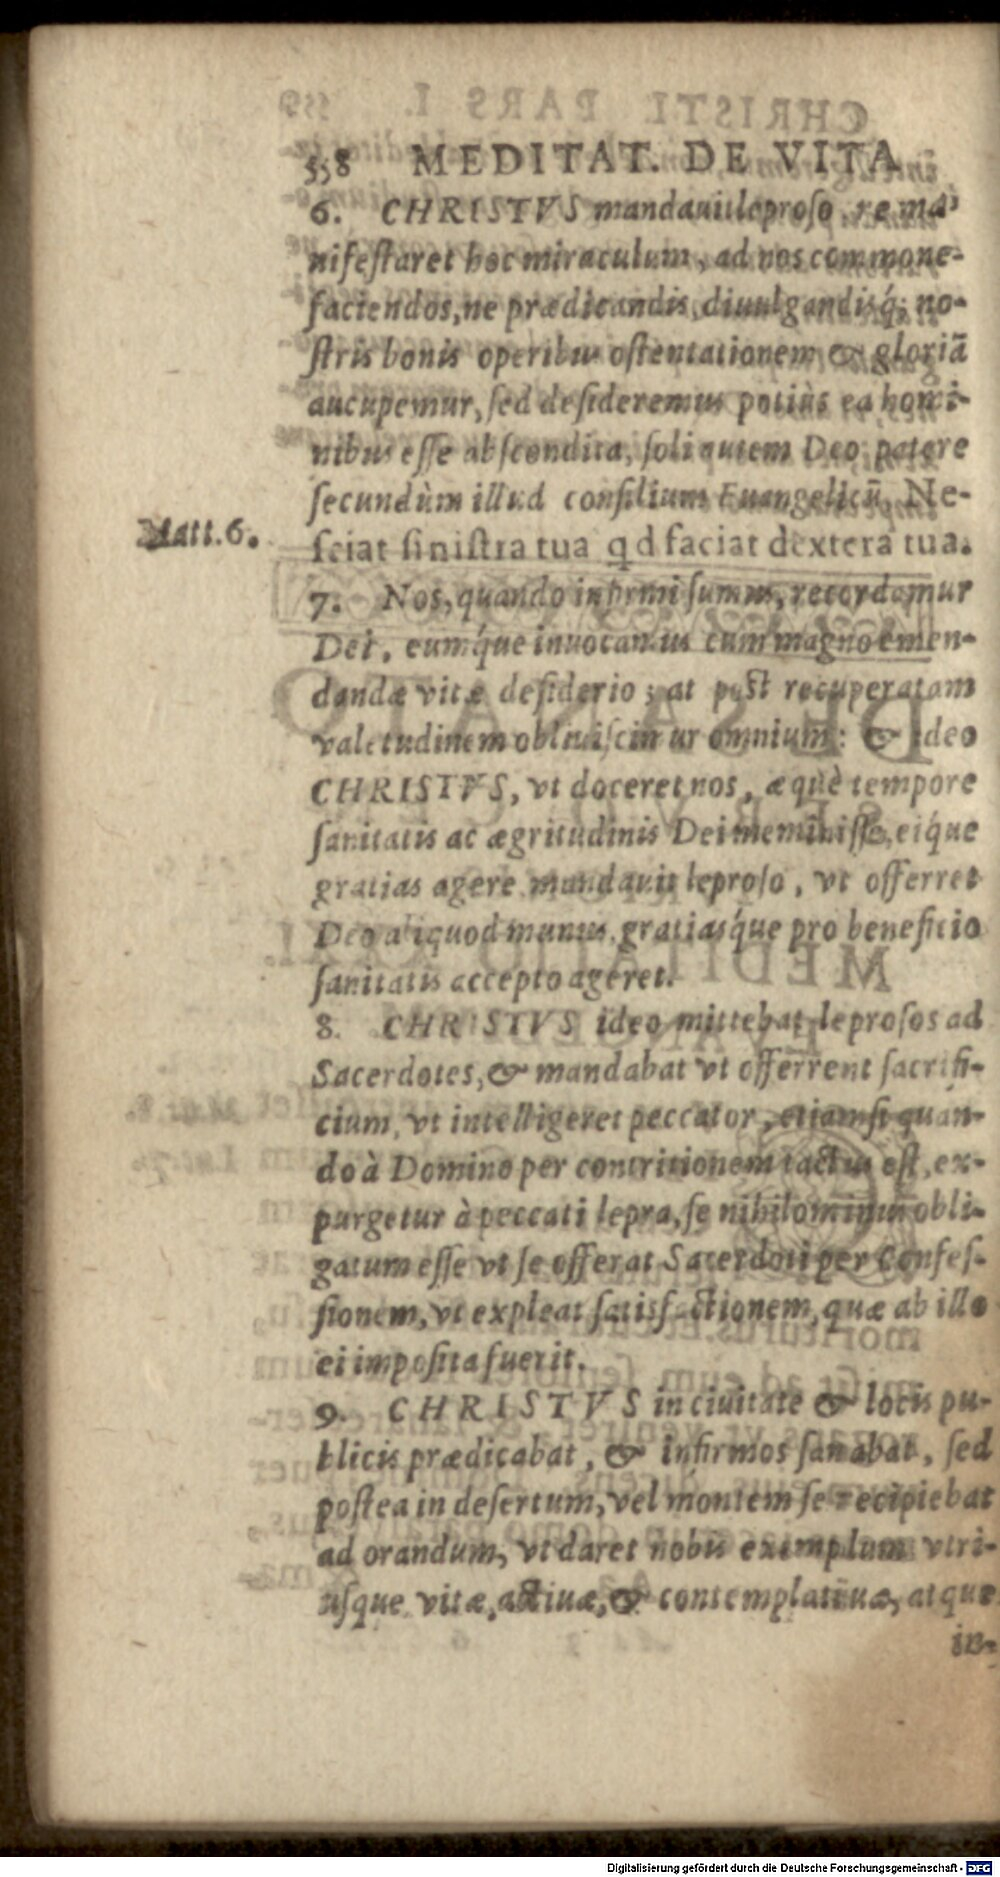 338 MEDITAT. DE VITA
6. CHRISTVS mandauit leproso, ne ma-
nifestaret hoc miraculum, ad nos commone-
faciendos, ne prædicandis, diuulgandisq́; no-
stris bonis operibus ostentationem & gloriā
aucupemur, sed desideremus potiùs ea homi-
nibus esse abscondita, soli autem Deo patere
secundùm illud consilium Euangelicū, Ne-
Matt. 6.
sciat sinistra tua qd faciat dextera tua.
7. Nos, quando infirmi sumus, recordamur
Dei, eumq́ue inuocamus cum magno emen-
dandæ vitæ desiderio; at post recuperatam
valetudinem obliuiscimur omnium: & ideo
CHRISTVS, vt doceret nos, æquè tempore
sanitatis ac ægritudinis Dei meminisse, eiq́ue
gratias agere mandauit leproso, vt offerret
Deo aliquod munus, gratiasq́ue pro beneficio
sanitatis accepto ageret.
8. CHRISTVS ideo mittebat leprosos ad
Sacerdotes, & mandabat vt offerrent sacrifi-
cium, vt intelligeret peccator, etiamsi quan-
do à Domino per contritionem tactus est, ex-
purgetur à peccati lepra, se nihilominus obli-
gatum esse vt se offerat Sacerdoti per Confes-
sionem, vt expleat satisfactionem, quæ ab illo
ei imposita fuerit.
9. CHRISTVS in ciuitate & locis pu-
blicis prædicabat, & infirmos sanabat, sed
postea in desertum, vel montem se recipiebat
ad orandum, vt daret nobis exemplum vtri-
usque vitæ, actiuæ, & contemplatiuæ, atque
in-
Digitalisierung gefördert durch die Deutsche Forschungsgemeinschaft - DFG